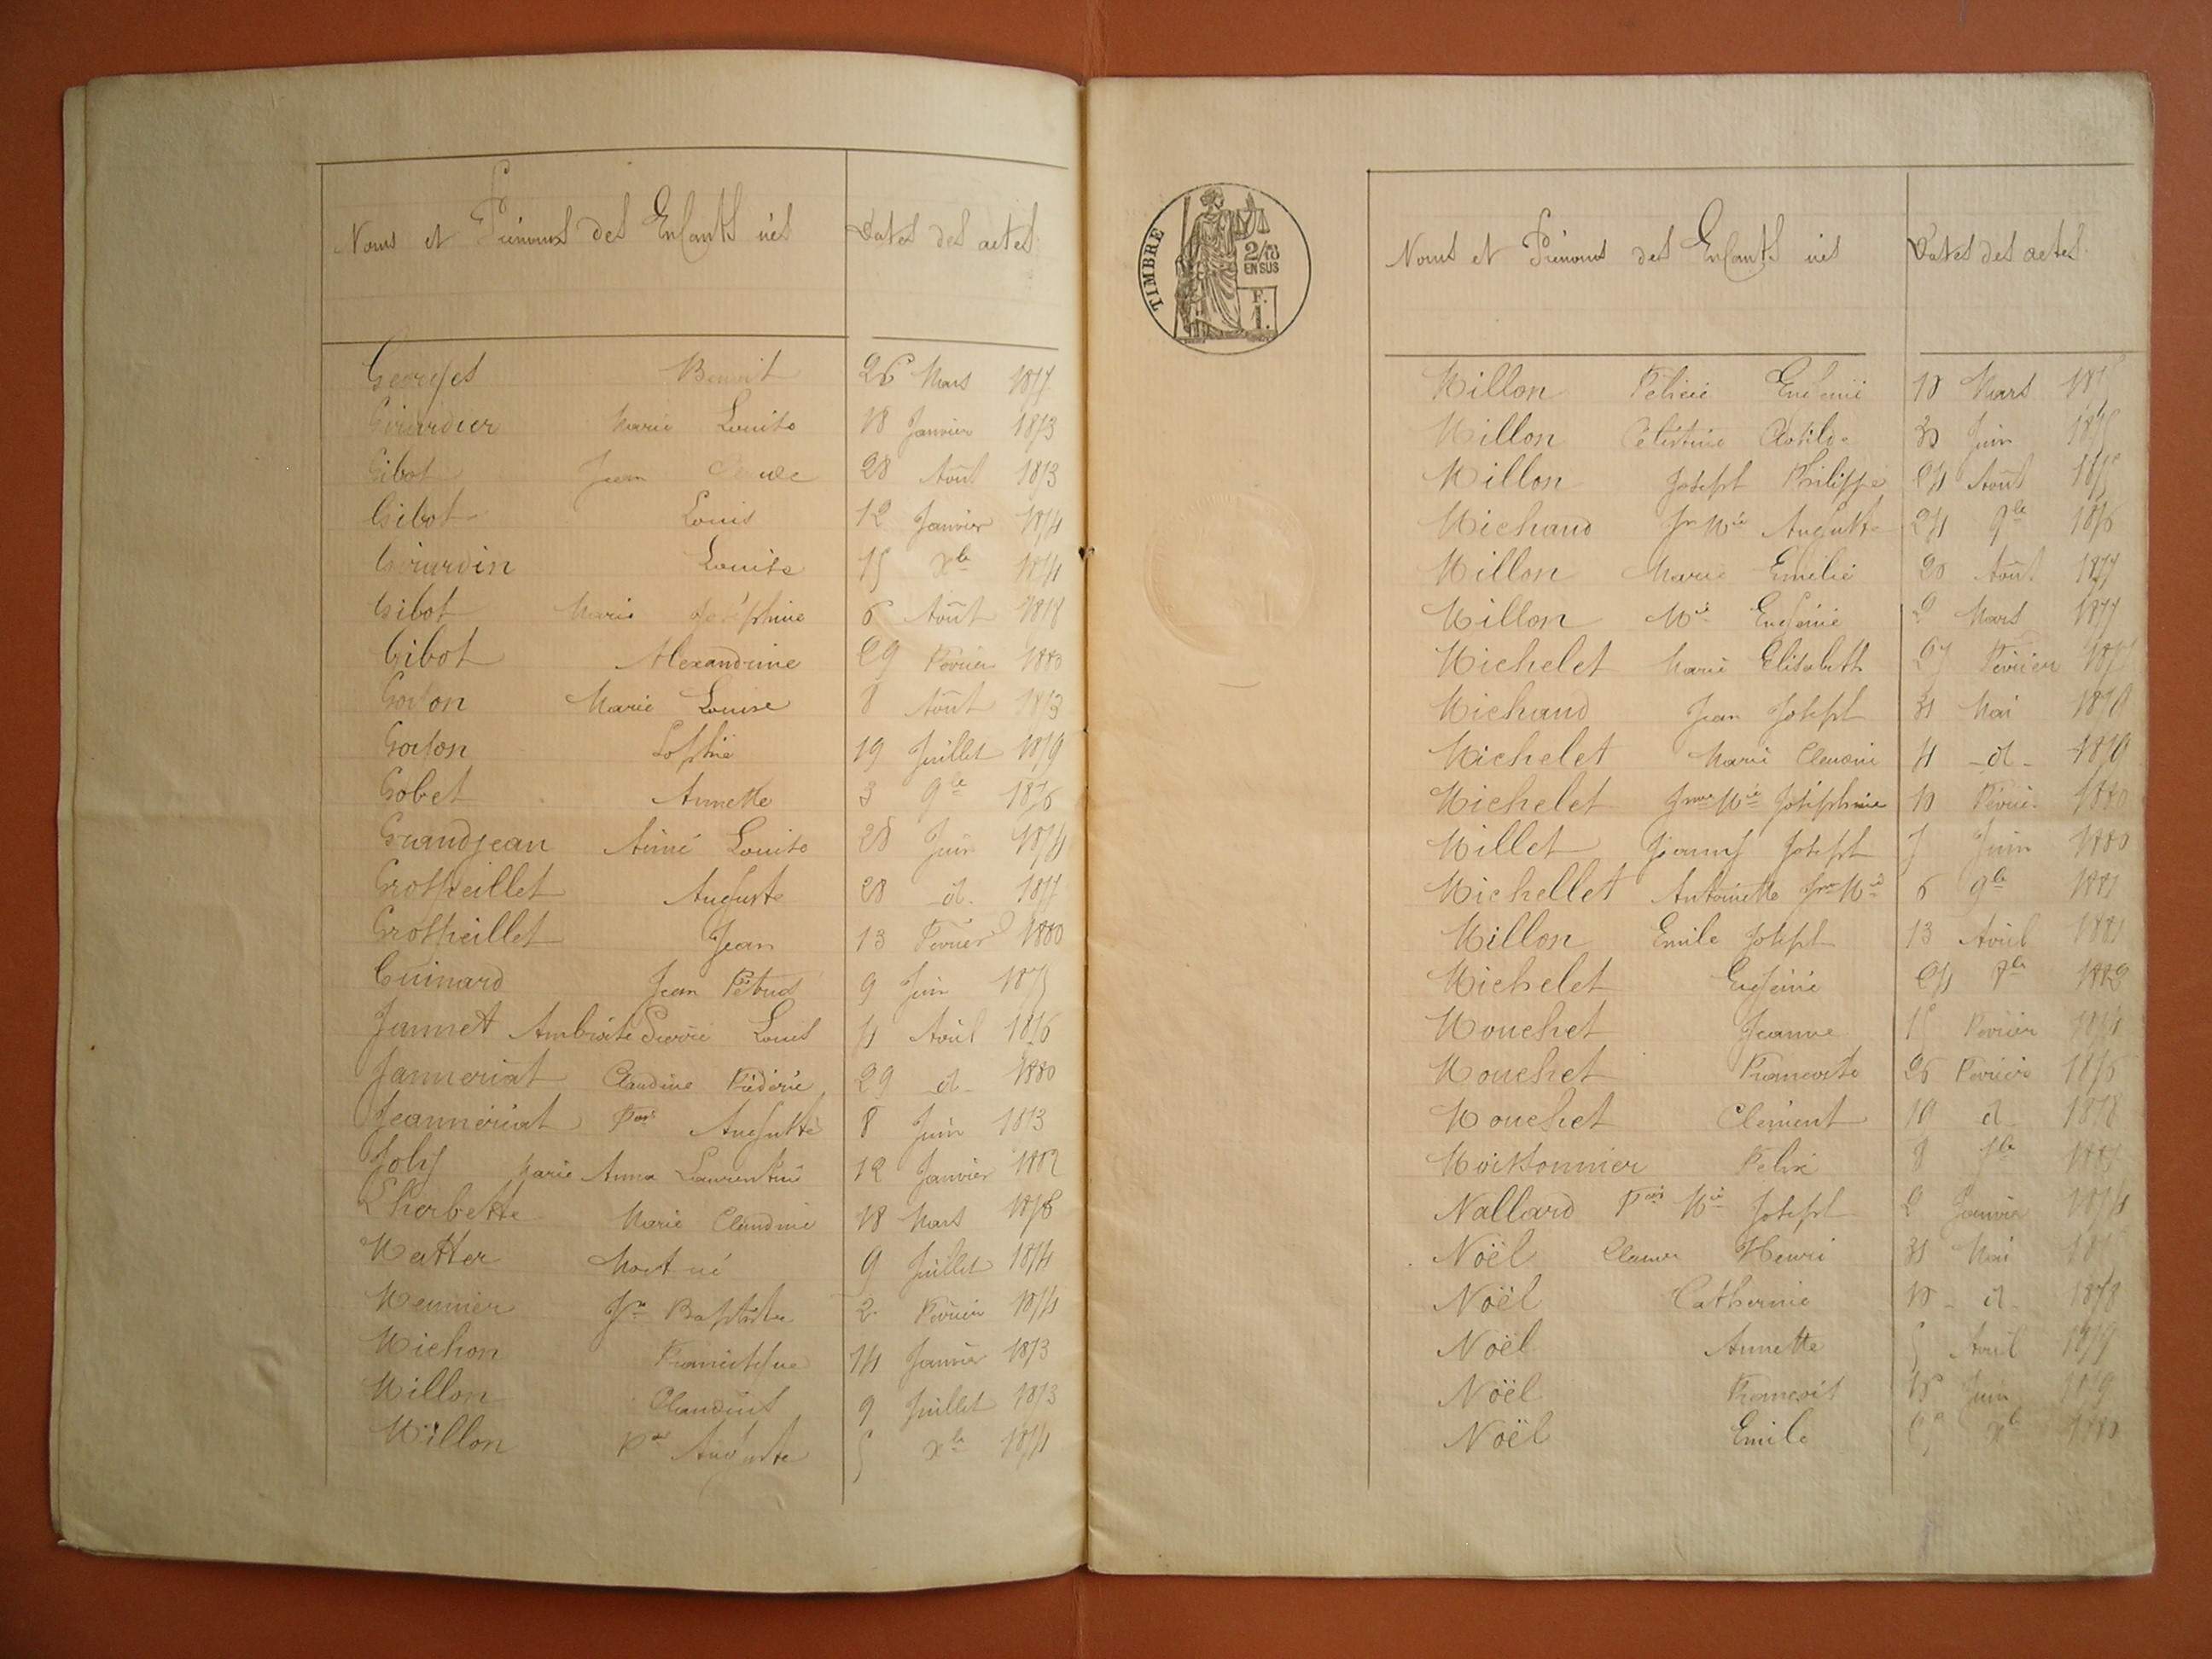 Noms et Prénoms des Enfants nés Dates des actes
Georges Benoit 26 Mars 1877
Girardier Marie Louise 18 Janvier 1873
Gibot Jean 28 Août 1873
Gibot Louis 12 Janvier 1874
Girardin Louise 15 Xbe 1874
Gibot Marie Joséphine 6 Août 1878
Gibot Alexandrine 29 Février 1880
Goyon Marie Louise 8 Août 1873
Goyon Sophie 19 Juillet 1879
Gobet Annette 3 9be 1876
Grandjean Aimé Louise 28 Juin 1874
Grosfieillet Auguste 28 d 1877
Grosfieillet Jean 13 Février 1880
Guinard Jean Pétrus 9 Juin 1875
Jannet Ambroise Pierre Louis 4 Avril 1876
Janneriat Claudine Frédéric 29 d 1880
Jeanneriat Fois Auguste 8 Juin 1873
Joly Marie Anna Laurentine 12 Janvier 1882
Lherbette Marie Claudine 18 Mars 1878
Matter Mort né 9 Juillet 1874
Meunier Jn Baptiste 2 Février 1874
Michon Francisque 14 Janvier 1873
Millon Claudius 9 Juillet 1873
Millon Auguste 5 Xbe 1874
TIMBRE
2/10
EN SUS
F.
1.
Noms et Prénoms des Enfants nés Dates des actes.
Millon Félicie Eugénie 10 Mars
Millon Célestine Clotilde 30 Juin 1875
Millon Joseph Philippe 24 Août 1875
Michaud Jn Mie Auguste 24 9be 1876
Millon Marie Emilie 20 Août 1877
Millon Mie Eugénie 2 Mars 1877
Michelet Marie Elisabeth 27 Février
Michaud Jean Joseph 31 Mai 1878
Michelet Marie Claudine 4 d 1879
Michelet Jnne Mie Joséphine 10 Février 1880
Millet Joanny Joseph 7 Juin 1880
Michellet Antoinette Jne Mie 6 9be 1881
Millon Emile Joseph 13 Avril 1881
Michelet Eugénie 24 1882
Mouchet Jeanne 15 Février 1874
Mouchet Françoise 26 Février 1876
Mouchet Clément 10 d 1878
Moissonnier Félix 8
Nallard Fois Mie Joseph 2 Janvier 1874
Noël Henri 31 Mai
Noël Catherine 10 d 1878
Noël Annette 5 Avril 1879
Noël François 15 Juin 1879
Noël Emile Xbe 1880